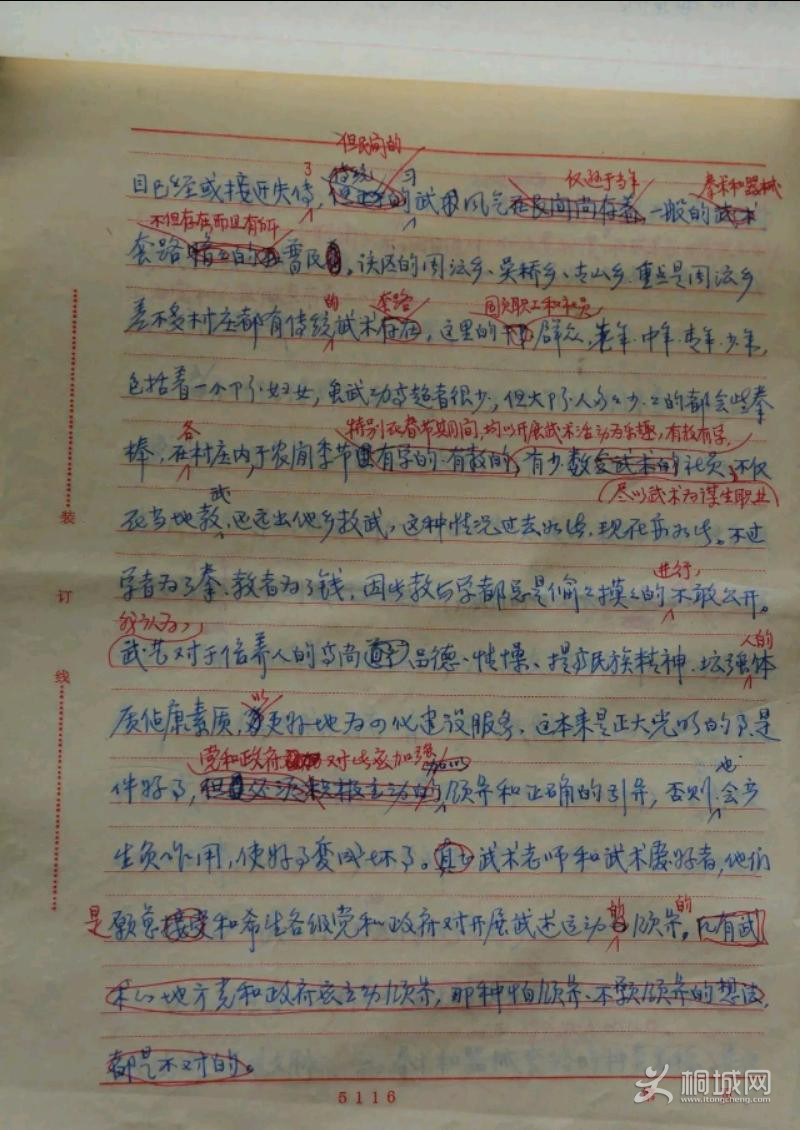 但民间的
目已经或接近失传了,传统习武风气仅逊于当年,一般的拳术和器械
不但存在而且有所
套路普及。该区的周法乡、吴桥乡、古山乡,重点是周法乡
差不多村庄都有传统的武术套路,这里的固员职工和社员群众,老年、中年、青年、少年,
包括着一小部分妇女,虽武功高超者很少,但大部分人多多少少的都会些拳
特别在春节期间,均以开展武术活动为乐趣,有教有学,
棒,在各村庄内于农闲季节有学的有教的,有少数武术的社员,不仅
尽以武术为谋生职业
在当地教武,还远出他乡教武,这种情况过去如此,现在亦如此。不过
学者为了拳,教者为了钱,因此教与学都总是偷偷摸摸的进行,不敢公开。
我认为,
武艺对于培养人的高尚品德、情操、提高民族精神、增强人的体
质健康素质,以更好地为四化建设服务,这本来是正大光明的事,是
党和政府对此应加强
件好事,领导和正确的引导,否则也会产
生负作用,使好事变成坏事。武术老师和武术爱好者,他们
是愿意接受和希望各级党和政府对开展武术运动的领导的,凡有武
术的地方党和政府应主动领导,那种怕领导、不愿领导的想法,
都是不对的。
装
订
线
5116
桐城网
www.itongcheng.com